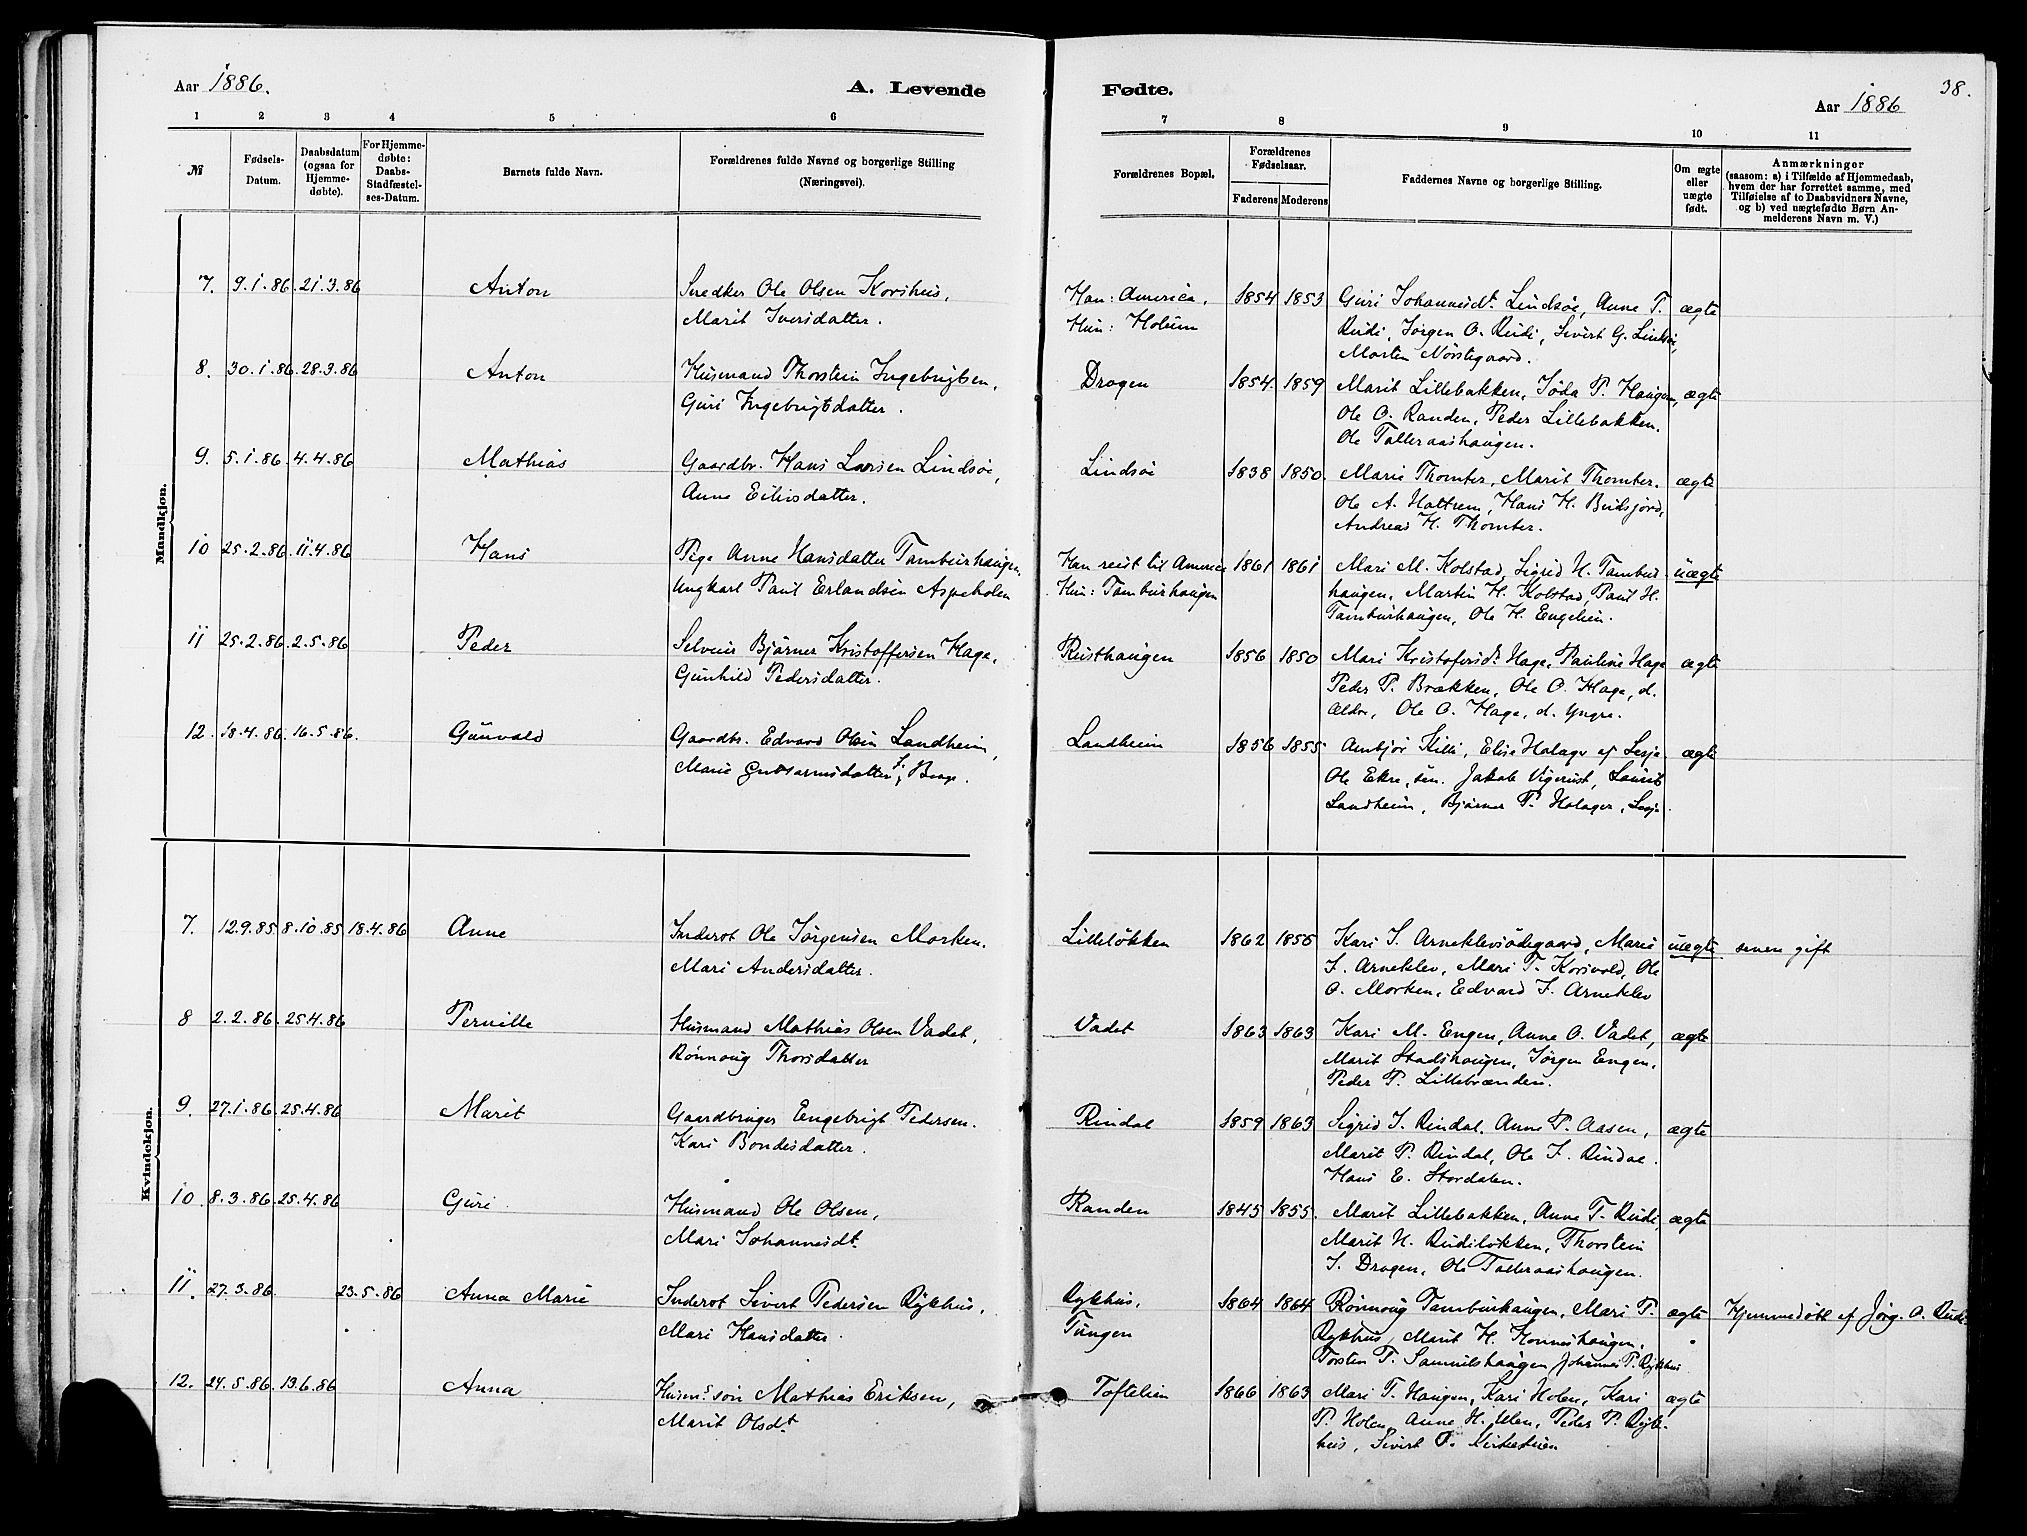 Aar 1886.
A. Levende
Fødte.
Aar 1886
38.
1 2 3 4 5 6 7 8 9 10 11
№
Fødsels-
Datum.
Daabsdatum
(ogsaa for
Hjemme-
døbte).
For Hjemme-
døbte:
Daabs-
Stadfæstel-
ses-Datum.
Barnets fulde Navn.
Forældrenes fulde Navne og borgerlige Stilling
(Næringsvei).
Forældrenes Bopæl.
Forældrenes
Fødselsaar.
Faderens Moderens
Faddernes Navne og borgerlige Stilling.
Om ægte
eller
uægte
født.
Anmærkninger
(saasom: a) i Tilfælde af Hjemmedaab,
hvem der har forrettet samme, med
Tilføielse af to Daabsvidners Navne,
og b) ved uægtefødte Børn An-
melderens Navn m. V.)
Mandkjøn.
7. 9.1.86. 21.3.86 Anton Snedker Ole Olsen Korshus,
Marit Iversdatter.
Han: America,
Hun: Holum
1854 1853 Guri Johannesdt. Lindsøe, Anne T. ægte
Rudi, Jørgen O. Rudi, Sivert G. Lindsøe,
Morten Nørstegaard.
8. 30.1.86. 28.3.86 Anton Husmand Thorstein Ingebrigtsen,
Guri Ingebrigtdatter.
Drogen 1854. 1859 Marit Lillebakken, Jøda P. Haugen, ægte
Ole O. Randen, Peder Lillebakken.
Ole Talleraashaugen.
9. 5.1.86. 4.4.86 Mathias Gaardbr. Hans Larsen Lindsøe,
Anne Eilivsdatter.
Lindsøe 1838 1850. Marie Thomter, Marit Thomter. ægte
Ole A. Hattrem, Hans H. Budsjord,
Andreas H. Thomter.
10 25.2.86. 11.4.86 Hans Pige Anne Hansdatter Tamburhaugen.
Ungkarl Paul Erlandsen Aspeholen
Han reist til America
Hun: Tamburhaugen
1861 1861 Mari M. Kolstad, Sigrid H. Tambur- uægte
haugen, Martin H. Kolstad, Paul H.
Tamburhaugen, Ole H. Engelien.
11 25.2.86. 2.5.86 Peder Selveier Bjørner Kristoffersen Hage,
Gunhild Pedersdatter.
Rusthaugen 1856 1850 Mari Kristofersdt. Hage, Pauline Hage ægte
Peder P. Brækken, Ole O. Hage, d.
Ældre, Ole O. Hage, d. Yngre.
12. 18.4.86. 16.5.86. Gunvald Gaardbr. Edvard Olsen Landheim,
Marie Guttormsdatter
Landheim 1856 1855 Ambjør Killi, Elise Holager af Lesja. ægte
Ole Ekre, sen. Jakob Vigerust, Laurit
Landheim, Bjørner P. Holager, Lesja.
Kvindekjøn.
7. 12.9.85 8.10.85 18.4.86 Anne Inderst Ole Jørgensen Morken.
Mari Andersdatter.
Lilleløkken 1862 1856 Kari I. Arneklevsødegaard, Marie uægte. senere gift
I. Arneklev, Mari T. Korsvold, Ole
O. Morken, Edvard I. Arneklev
8 2.2.86. 25.4.86 Pernille Husmand Mathias Olsen Vadet,
Rønnoug Thorsdatter
Vadet 1863 1863 Kari M. Engen, Anne O. Vadet, ægte
Marit Stadshaugen, Jørgen Engen,
Peder P. Lillebrænden.
9. 27.1.86. 25.4.86 Marit Gaardbruger Engebrigt Pedersen.
Kari Bondesdatter.
Rindal 1859 1863 Sigrid I. Rindal. Anne P. Aasen, ægte
Marit P. Rindal, Ole I. Rindal.
Hans E. Stordalen.
10. 8.3.86. 25.4.86 Guri Husmand Ole Olsen,
Mari Johannesdt.
Randen 1845 1855. Marit Lillebakken, Anne T. Rudi, ægte
Marit H. Rudiløkken, Thorstein
I. Drogen, Ole Talleraashaugen.
11. 27.3.86. 23.5.86 Anna Marie Inderst Sivert Pedersen Rykhus,
Mari Hansdatter.
Rykhus,
Tungen
1864 1864 Rønnoug Tamburhaugen, Mari P. ægte Hjemmedøbt af Jørg. O. Rudi
Rykhus, Marit H. Konneshaugen,
Torsten T. Samuelshaugen, Johannes P. Rykhus
12. 24.5.86. 13.6.86 Anna Husms. søn Mathias Eriksen,
Marit Olsdt.
Toftelien 1866 1863 Mari T. Haugen, Kari Holen, Kari ægte
P. Holen, Anne H. Ulen, Peder P. Ryk-
hus, Sivert P.